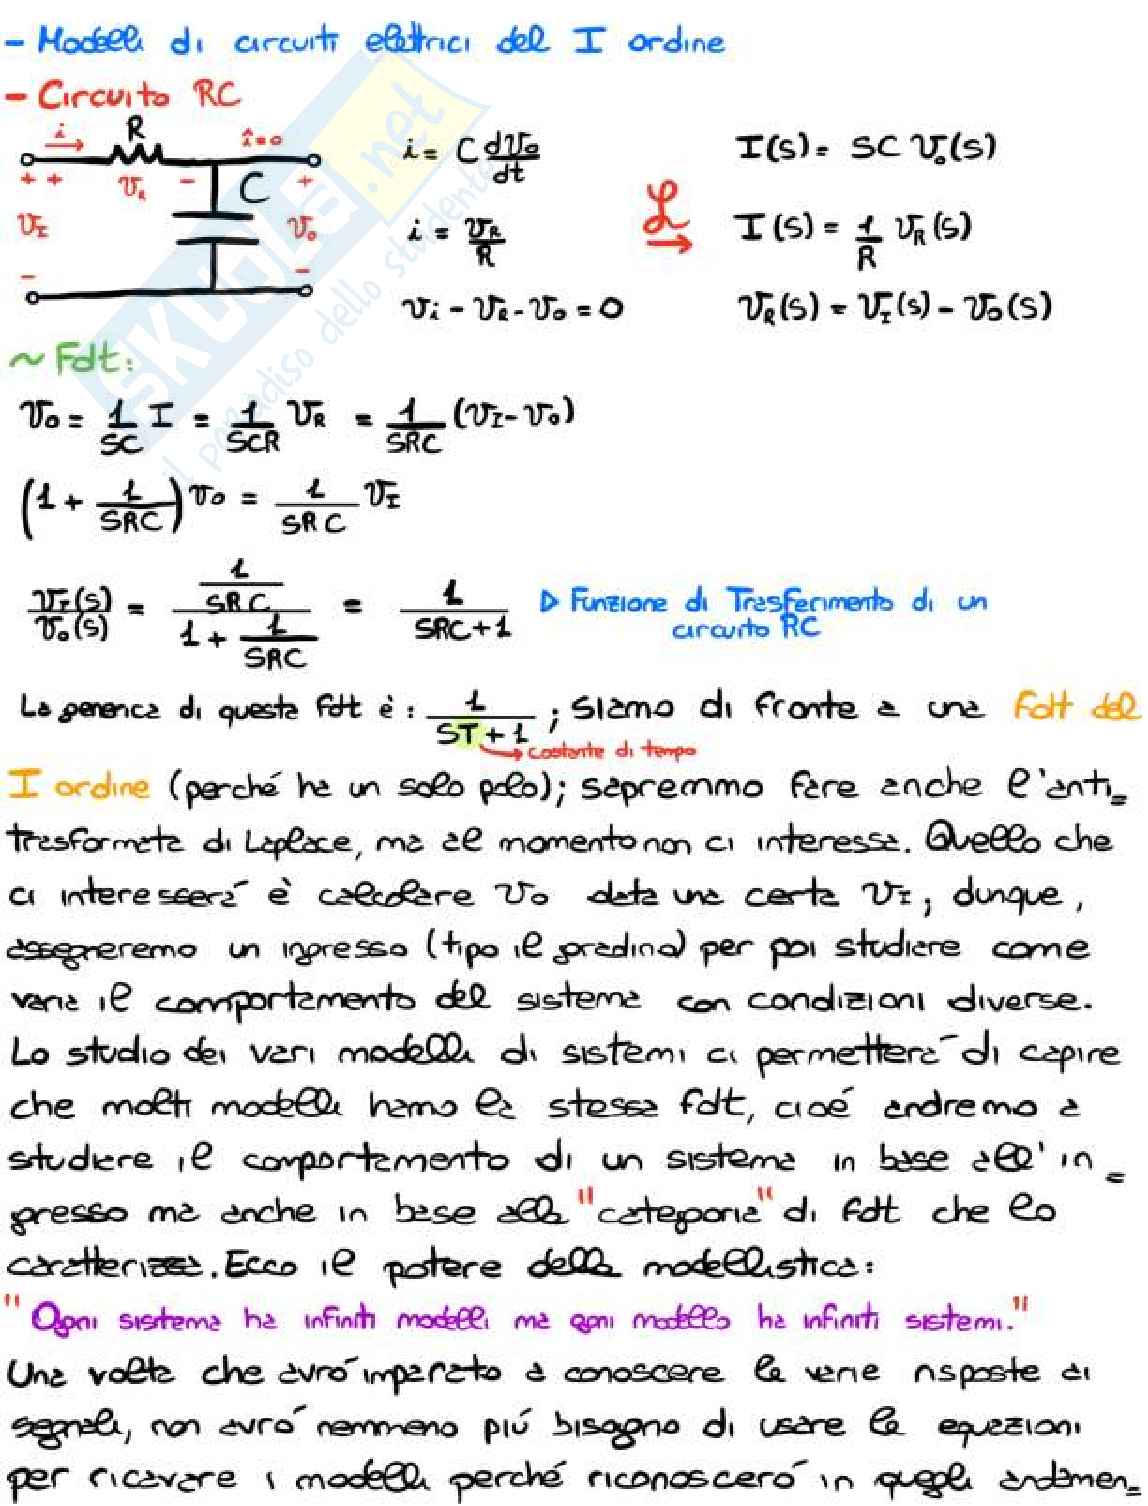 - Modelli di circuiti elettrici del I ordine
- Circuito RC
i R î=0
+ + V_R - C +
V_I V_o
- -
i = C dV_o/dt
i = V_R/R
V_i - V_R - V_o = 0
ℒ →
I(s) = SC V_o(s)
I(s) = 1/R V_R(s)
V_R(s) = V_I(s) - V_o(s)
~ Fdt:
V_o = 1/SC I = 1/SCR V_R = 1/SRC (V_I - V_o)
(1 + 1/SRC) V_o = 1/SRC V_I
V_I(s)/V_o(s) = (1/SRC)/(1 + 1/SRC) = 1/(SRC+1) ▷ Funzione di Trasferimento di un
circuito RC
La generica di questa fdt è: 1/(ST+1); siamo di fronte a una Fdt del
costante di tempo
I ordine (perché ha un solo polo); sapremmo fare anche l'anti=
trasformata di Laplace, ma al momento non ci interessa. Quello che
ci interesserà è calcolare V_o data una certa V_I; dunque,
assegneremo un ingresso (tipo il gradino) per poi studiare come
varia il comportamento del sistema con condizioni diverse.
Lo studio dei vari modelli di sistemi ci permetterà di capire
che molti modelli hanno la stessa fdt, cioé andremo a
studiare il comportamento di un sistema in base all' in=
gresso ma anche in base alla "categoria" di fdt che lo
caratterizza. Ecco il potere della modellistica:
"Ogni sistema ha infiniti modelli ma ogni modello ha infiniti sistemi."
Una volta che avró imparato a conoscere le varie risposte ai
segnali, non avró nemmeno piú bisogno di usare le equazioni
per ricavare i modelli perché riconosceró in quegli andamen=
SKUOLA.net
il paradiso dello studente